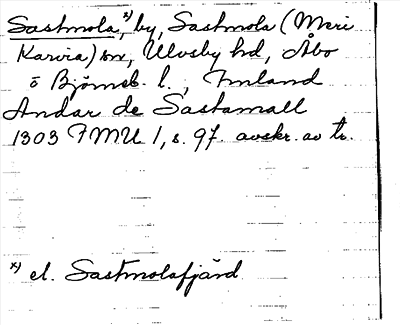 Sastmola,ˣ⁾ by, Sastmola (Meri
Karvia) sn, Ulvsby hd, Åbo
o Björneb. l., Finland
Andar de Sastamall
1303 FMU 1, s. 97. avskr. av tr.
ˣ⁾ el. Sastmolafjärd